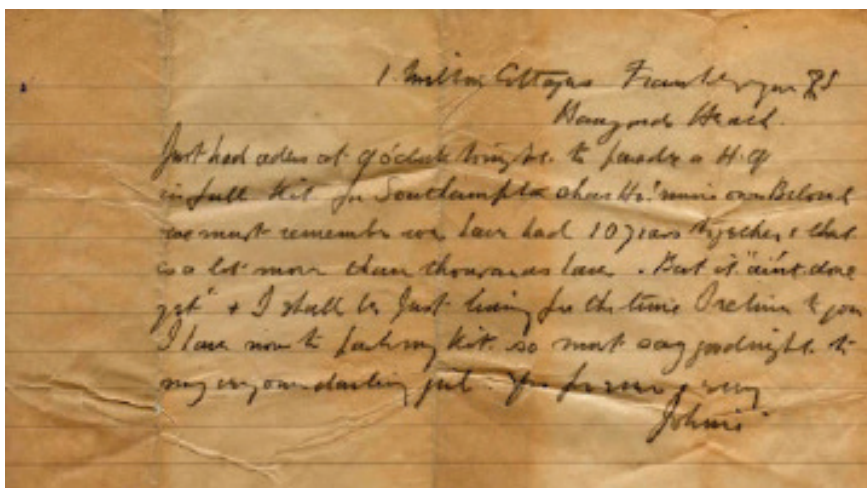 1. Milton Cottages
Just had orders at 9 o'clock tonight to parade a H.Q
in full kit for Southampton mine own Beloved
we must remember we have had 10 years together & that
is a lot more than thousands have. But it "ain't done
yet" & I shall be just living for the time I return to you
I have now to pack my kit. so must say goodnight to
my very own darling girl